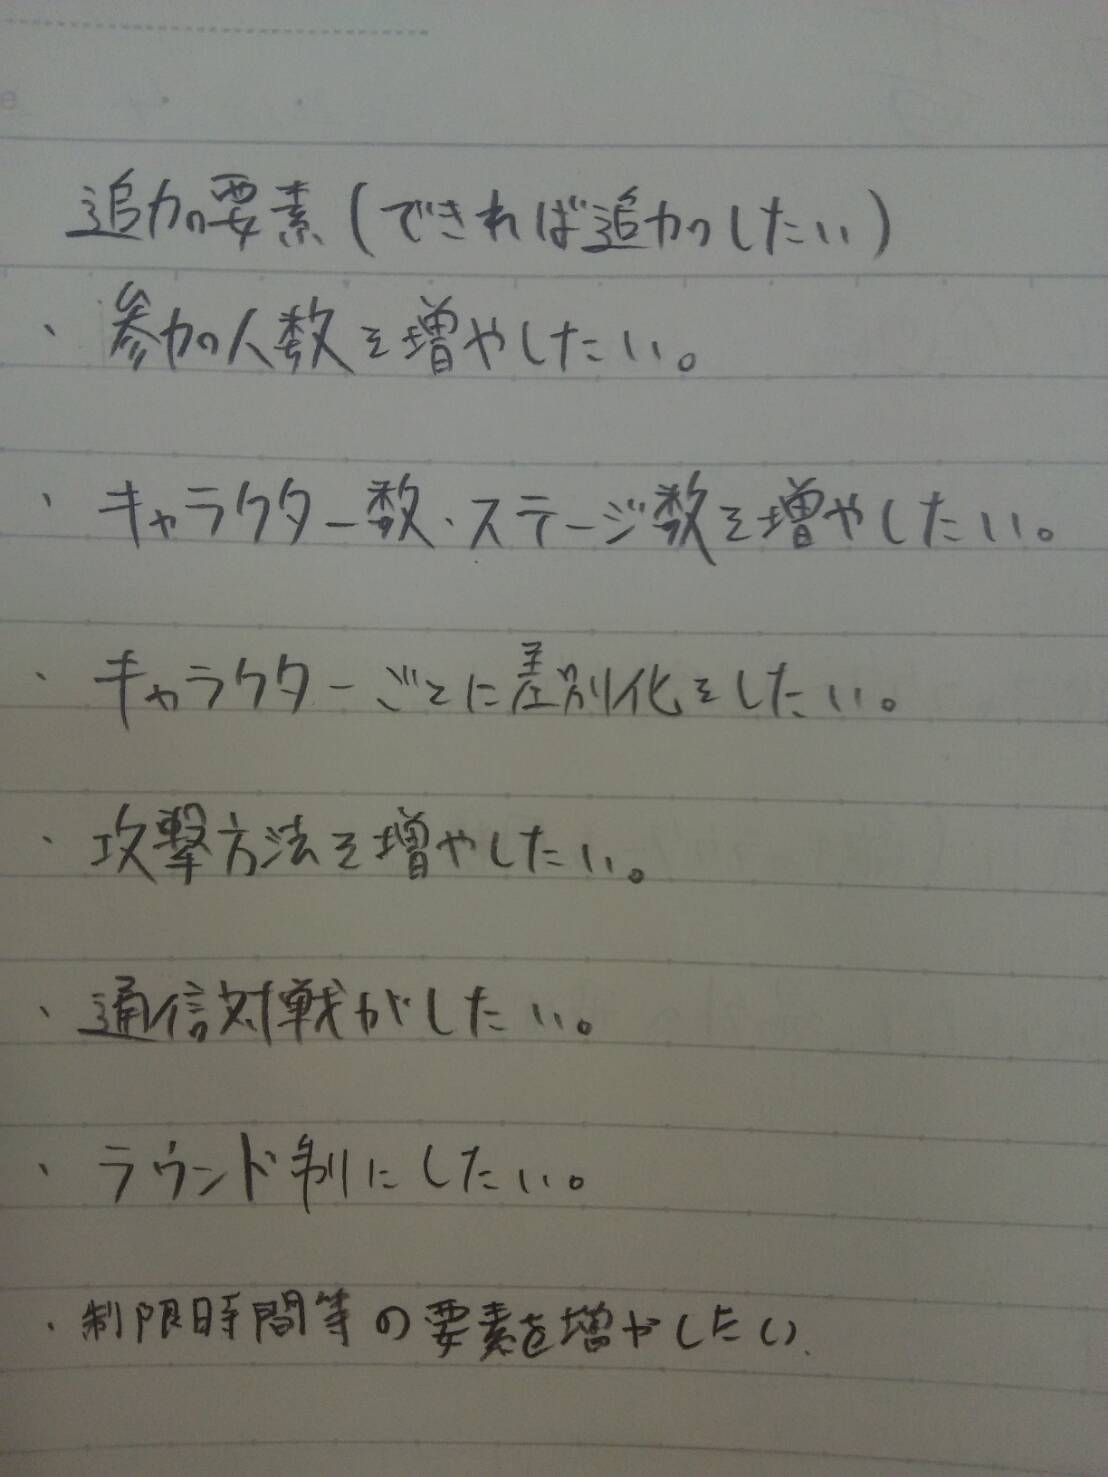 追加要素(できれば追加したい)
・参加人数を増やしたい。
・キャラクター数・ステージ数を増やしたい。
・キャラクターごとに差別化をしたい。
・攻撃方法を増やしたい。
・通信対戦がしたい。
・ラウンド制にしたい。
・制限時間等の要素を増やしたい.